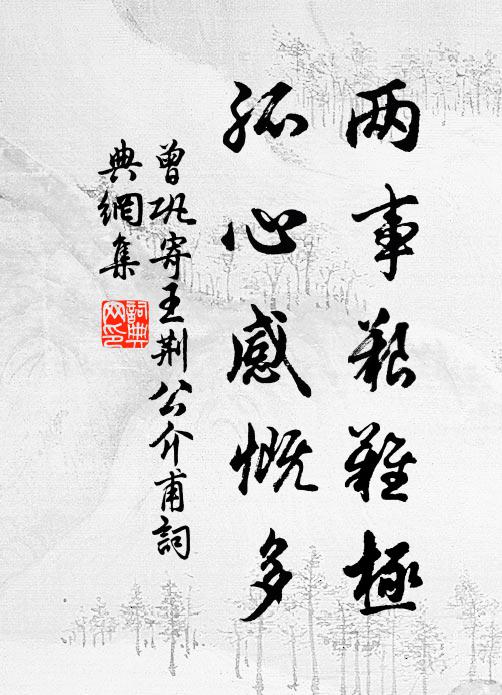 两事艰难極
孤心感慨多
曾巩寄王荆公介甫詞
典網集
詞典
网印